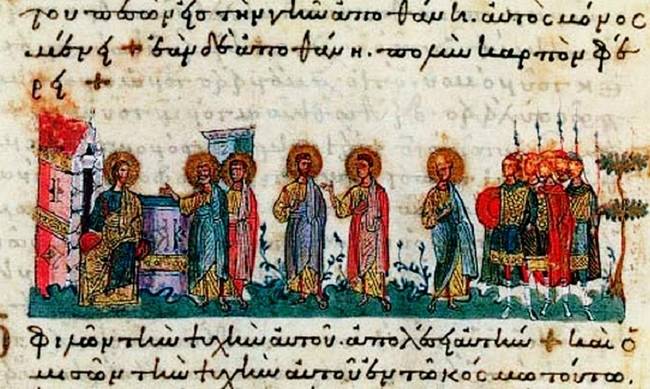 του πεσὼν εἰς τὴν γῆν ἀποθάνη. αὐτὸς μόνος
μένει + ἐὰν δὲ ἀποθάνη. πολὺν καρπὸν φέ
ρει +
Ὁ φιλῶν τὴν ψυχὴν αὐτοῦ. ἀπολέσει αὐτὴν + καὶ ὁ
μισῶν τὴν ψυχὴν αὐτοῦ ἐν τῶ κόσμω τούτω.